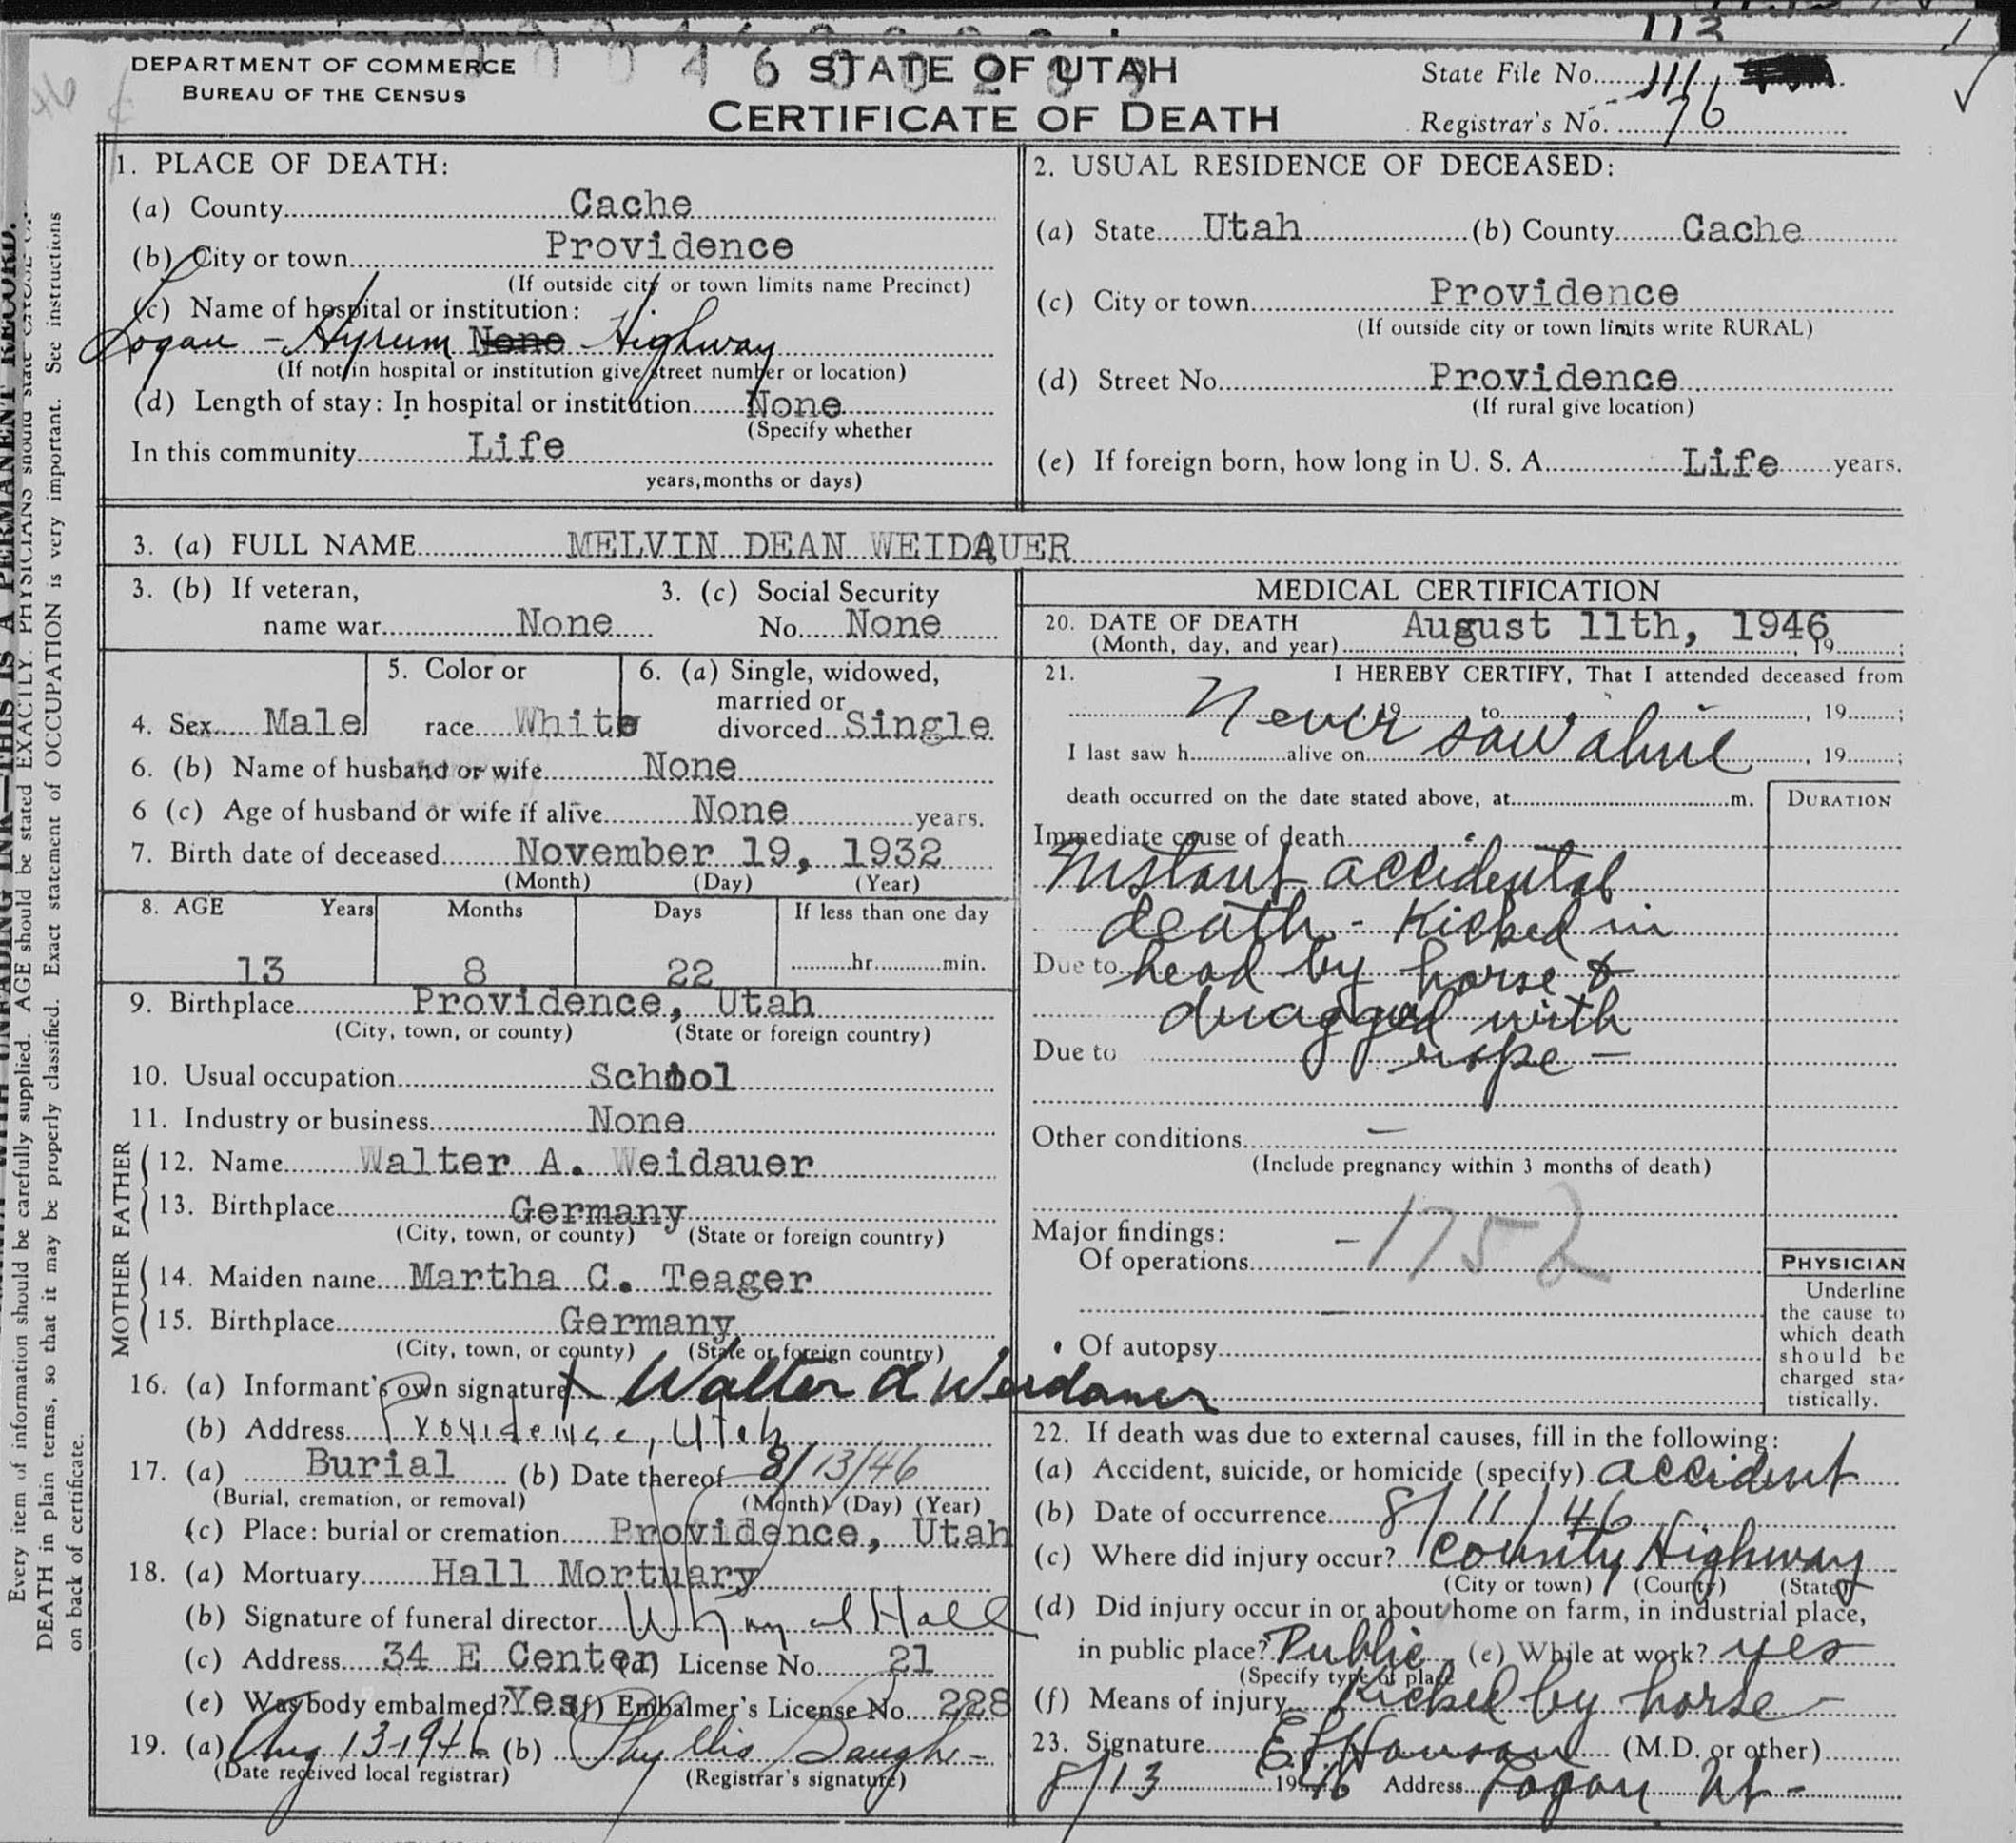 113
DEPARTMENT OF COMMERCE
BUREAU OF THE CENSUS
STATE OF UTAH
CERTIFICATE OF DEATH
State File No. 111
Registrar's No. 76
1. PLACE OF DEATH:
(a) County Cache
(b) City or town Providence
(If outside city or town limits name Precinct)
(c) Name of hospital or institution:
Logan - Hyrum None Highway
(If not in hospital or institution give street number or location)
(d) Length of stay: In hospital or institution None
(Specify whether
In this community Life
years, months or days)
2. USUAL RESIDENCE OF DECEASED:
(a) State Utah (b) County Cache
(c) City or town Providence
(If outside city or town limits write RURAL)
(d) Street No. Providence
(If rural give location)
(e) If foreign born, how long in U. S. A. Life years.
3. (a) FULL NAME MELVIN DEAN WEIDAUER
3. (b) If veteran, name war None
3. (c) Social Security No. None
4. Sex Male
5. Color or race White
6. (a) Single, widowed, married or divorced Single
6. (b) Name of husband or wife None
6 (c) Age of husband or wife if alive None years.
7. Birth date of deceased November 19, 1932
(Month) (Day) (Year)
8. AGE Years Months Days If less than one day
13 8 22 hr. min.
9. Birthplace Providence, Utah
(City, town, or county) (State or foreign country)
10. Usual occupation School
11. Industry or business None
FATHER
12. Name Walter A. Weidauer
13. Birthplace Germany
(City, town, or county) (State or foreign country)
MOTHER
14. Maiden name Martha C. Teager
15. Birthplace Germany
(City, town, or county) (State or foreign country)
16. (a) Informant's own signature X Walter A Weidauer
(b) Address Providence, Utah
17. (a) Burial (b) Date thereof 8/13/46
(Burial, cremation, or removal) (Month) (Day) (Year)
(c) Place: burial or cremation Providence, Utah
18. (a) Mortuary Hall Mortuary
(b) Signature of funeral director Hall
(c) Address 34 E Center (d) License No. 21
(e) Was body embalmed? Yes (f) Embalmer's License No. 228
19. (a) Aug 13-1946 (b) Phyllis
(Date received local registrar) (Registrar's signature)
MEDICAL CERTIFICATION
20. DATE OF DEATH August 11th, 1946
(Month, day, and year) , 19 ;
21. I HEREBY CERTIFY, That I attended deceased from
, 19 to , 19 ;
Never saw alive
I last saw h alive on , 19 ;
death occurred on the date stated above, at m.
DURATION
Immediate cause of death
Instant accidental
death - Kicked in
Due to head by horse &
dragged with
Due to rope -
Other conditions -
(Include pregnancy within 3 months of death)
Major findings:
Of operations -1752
Of autopsy
PHYSICIAN
Underline
the cause to
which death
should be
charged sta-
tistically.
22. If death was due to external causes, fill in the following:
(a) Accident, suicide, or homicide (specify) accident
(b) Date of occurrence 8/11/46
(c) Where did injury occur? County Highway
(City or town) (County) (State)
(d) Did injury occur in or about home on farm, in industrial place,
in public place? Public (e) While at work? yes
(Specify type of place
(f) Means of injury Kicked by horse
23. Signature (M.D. or other)
8/13 1946 Address Logan Ut -
Every item of information should be carefully supplied. AGE should be stated EXACTLY. PHYSICIANS should state
DEATH in plain terms, so that it may be properly classified. Exact statement of OCCUPATION is very important. See instructions
on back of certificate.
THIS IS A PERMANENT RECORD.